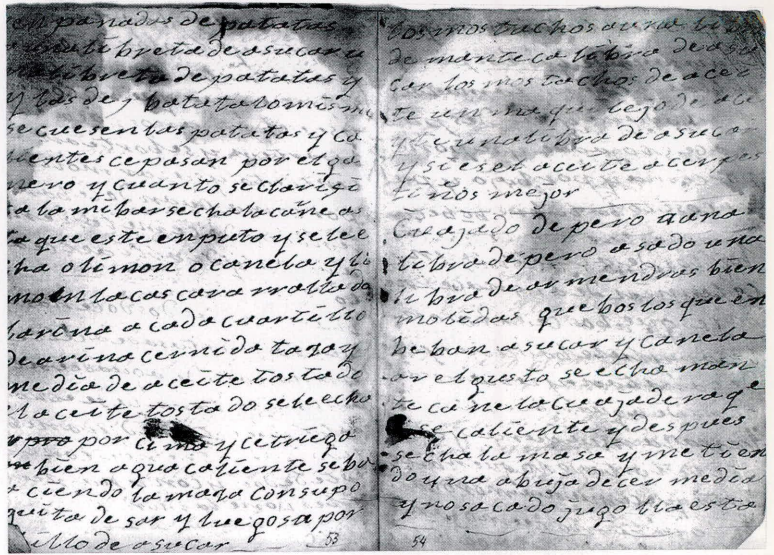 empanadas de patatas
una libreta de asucar u
na libreta de patatas y
y las de patata lo mism
se cuesen las patatas y ca
lientes ce pasan por el ga
nero y cuanto se clarifi
ca la mibar se cha la cane as
ta que este en puto y se le e
cha o limon o canela y li
mon la cascara rrallada
larina a cada cuartillo
de arina cernida taza y
media de aceite tostado
el aceite tostado se le echa
por cima y cetriega
bien agua caliente se ba
ciendo la maza con su po
quita de sar y luego sa por
illo de asucar
53
los mostachos a una libr
de manteca libra de asu
car los mostachos de acei
te un ma que lejo de ace
yte una libra de asucar
y si es el aceite a cer pes
tiños mejor
Cuajado de pero a una
libra de pero asado una
libra de armendras bien
molidas que bos los que en
beban asucar y canela
ar el gusto se echa man
teca ne la cuajadera q e
se caliente y despues
se cha la masa y metien
do una abuja de cer media
y no sacado jugo lla esta
54